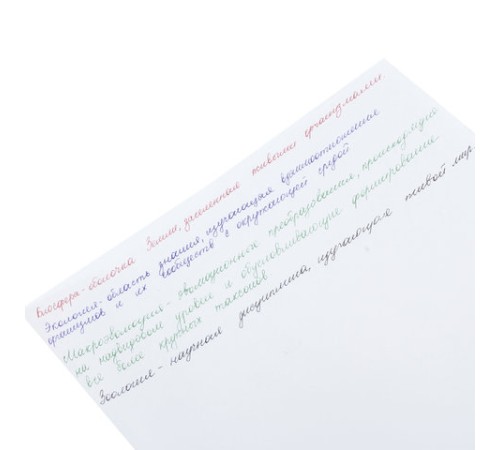 Биосфера - оболочка Земли, заселенная живыми организмами.
Экология - область знания, изучающая взаимоотношения
организмов и их сообществ с окружающей средой
Макроэволюция - эволюционные преобразования, происходящие
на надвидовом уровне и обуславливающие формирование
все более крупных таксонов
Зоология - научная дисциплина, изучающая живой мир